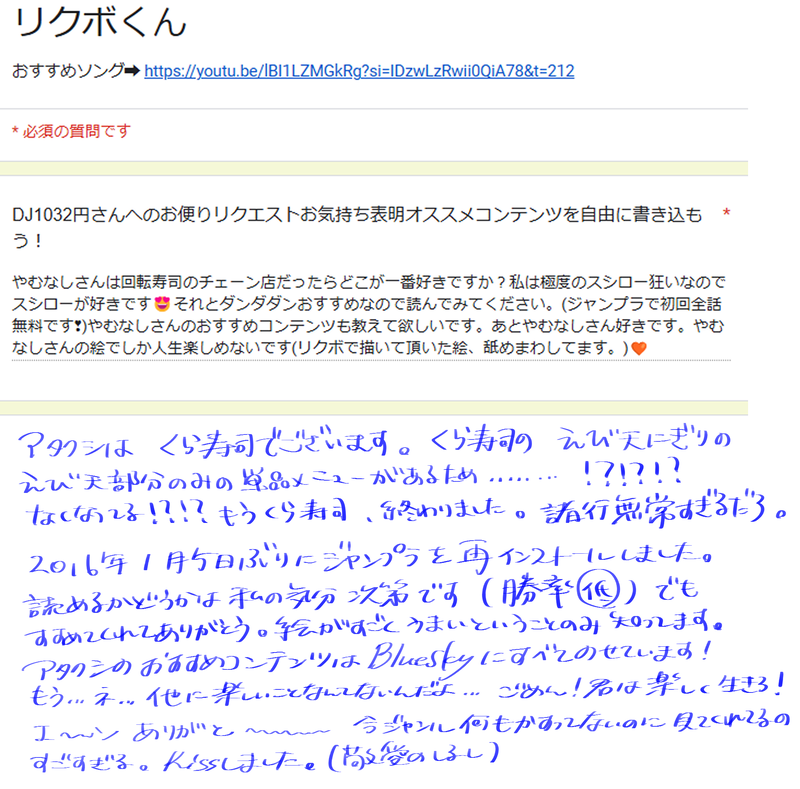 リクボくん
おすすめソング➡ https://youtu.be/lBI1LZMGkRg?si=IDzwLzRwii0QiA78&t=212
* 必須の質問です
DJ1032円さんへのお便りリクエストお気持ち表明オススメコンテンツを自由に書き込も *
う！
やむなしさんは回転寿司のチェーン店だったらどこが一番好きですか？私は極度のスシロー狂いなので
スシローが好きです😍それとダンダダンおすすめなので読んでみてください。(ジャンプラで初回全話
無料です❣)やむなしさんのおすすめコンテンツも教えて欲しいです。あとやむなしさん好きです。やむ
なしさんの絵でしか人生楽しめないです(リクボで描いて頂いた絵、舐めまわしてます。)🧡
アタクシは くら寿司でございます。くら寿司の えび天にぎりの
えび天部分のみの単品メニューがあるため…… … !?!?!?
なくなってる!?!? もうくら寿司、終わりました。諸行無常すぎるだろ。
2016年1月5日ぶりにジャンプラを再インストールしました。
読めるかどうかは私の気分次第です(勝率低)でも
すすめてくれてありがとう。絵がすごくうまいということのみ知ってます。
アタクシのおすすめコンテンツはBlueskyにすべてのせています!
もう…ネ… 他に楽しいことなんてないんだよ… ごめん!君は楽しく生きろ!
エ〜ン ありがと〜〜〜〜 今ジャンル何もかすってないのに見てくれてるの
すごすぎる。Kissしました。(敬愛のしるし)